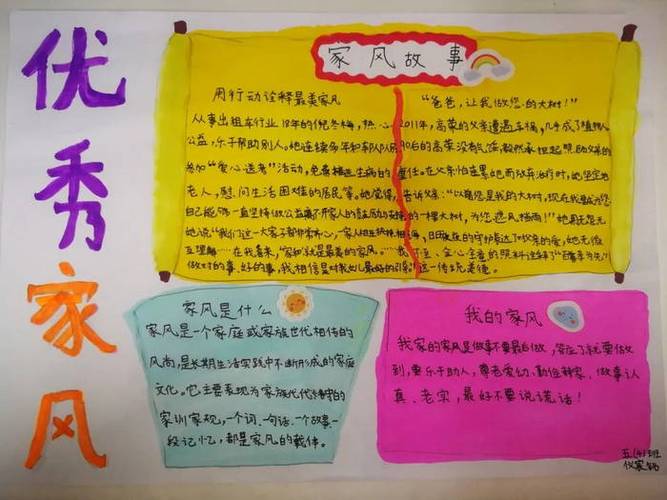 优秀家风
家风故事
用行动诠释最美家风
从事出租车行业18年的倪冬梅，热心
公益，乐于帮助别人。她连续多年和
参加“爱心送考”活动，免费接送生病的
老人，慰问生活困难的居民等。她觉得，
自己能够一直坚持做公益离不开家人的鼓励与支持
她说“我们这一大家子都非常齐心，家人相互扶持相
互理解……在我看来，“家和”就是最美的家风。”
做对的事、好的事，我相信是对我女儿最好的引导
“爸爸，让我做您的大树！”
2011年，高荣的父亲遭遇车祸，几乎成了植物人
90后的高荣没有气馁，毅然承担起照顾父亲的
责任。在父亲怕连累她而放弃治疗时，她坚定地
告诉父亲：“以前您是我的大树，现在我要成为您
的一棵大树，为您遮风挡雨！”她用无怨无
悔，日日夜夜的守护表达了父亲的爱，她无微
不至、全心全意的照料诠释了“百善孝为先”
这一传统美德。
家风是什么
家风是一个家庭或家族世代相传的
风尚，是长期生活实践中不断形成的家庭
文化。它主要表现为家族代代传中的
家训家规，一个词、一句话、一个故事、一
段记忆，都是家风的载体。
我的家风
我家的家风是做事不要最后做，答应了就要做
到，要乐于助人，尊老爱幼、勤俭持家、做事认
真、老实，最好不要说谎话！
五(4)班